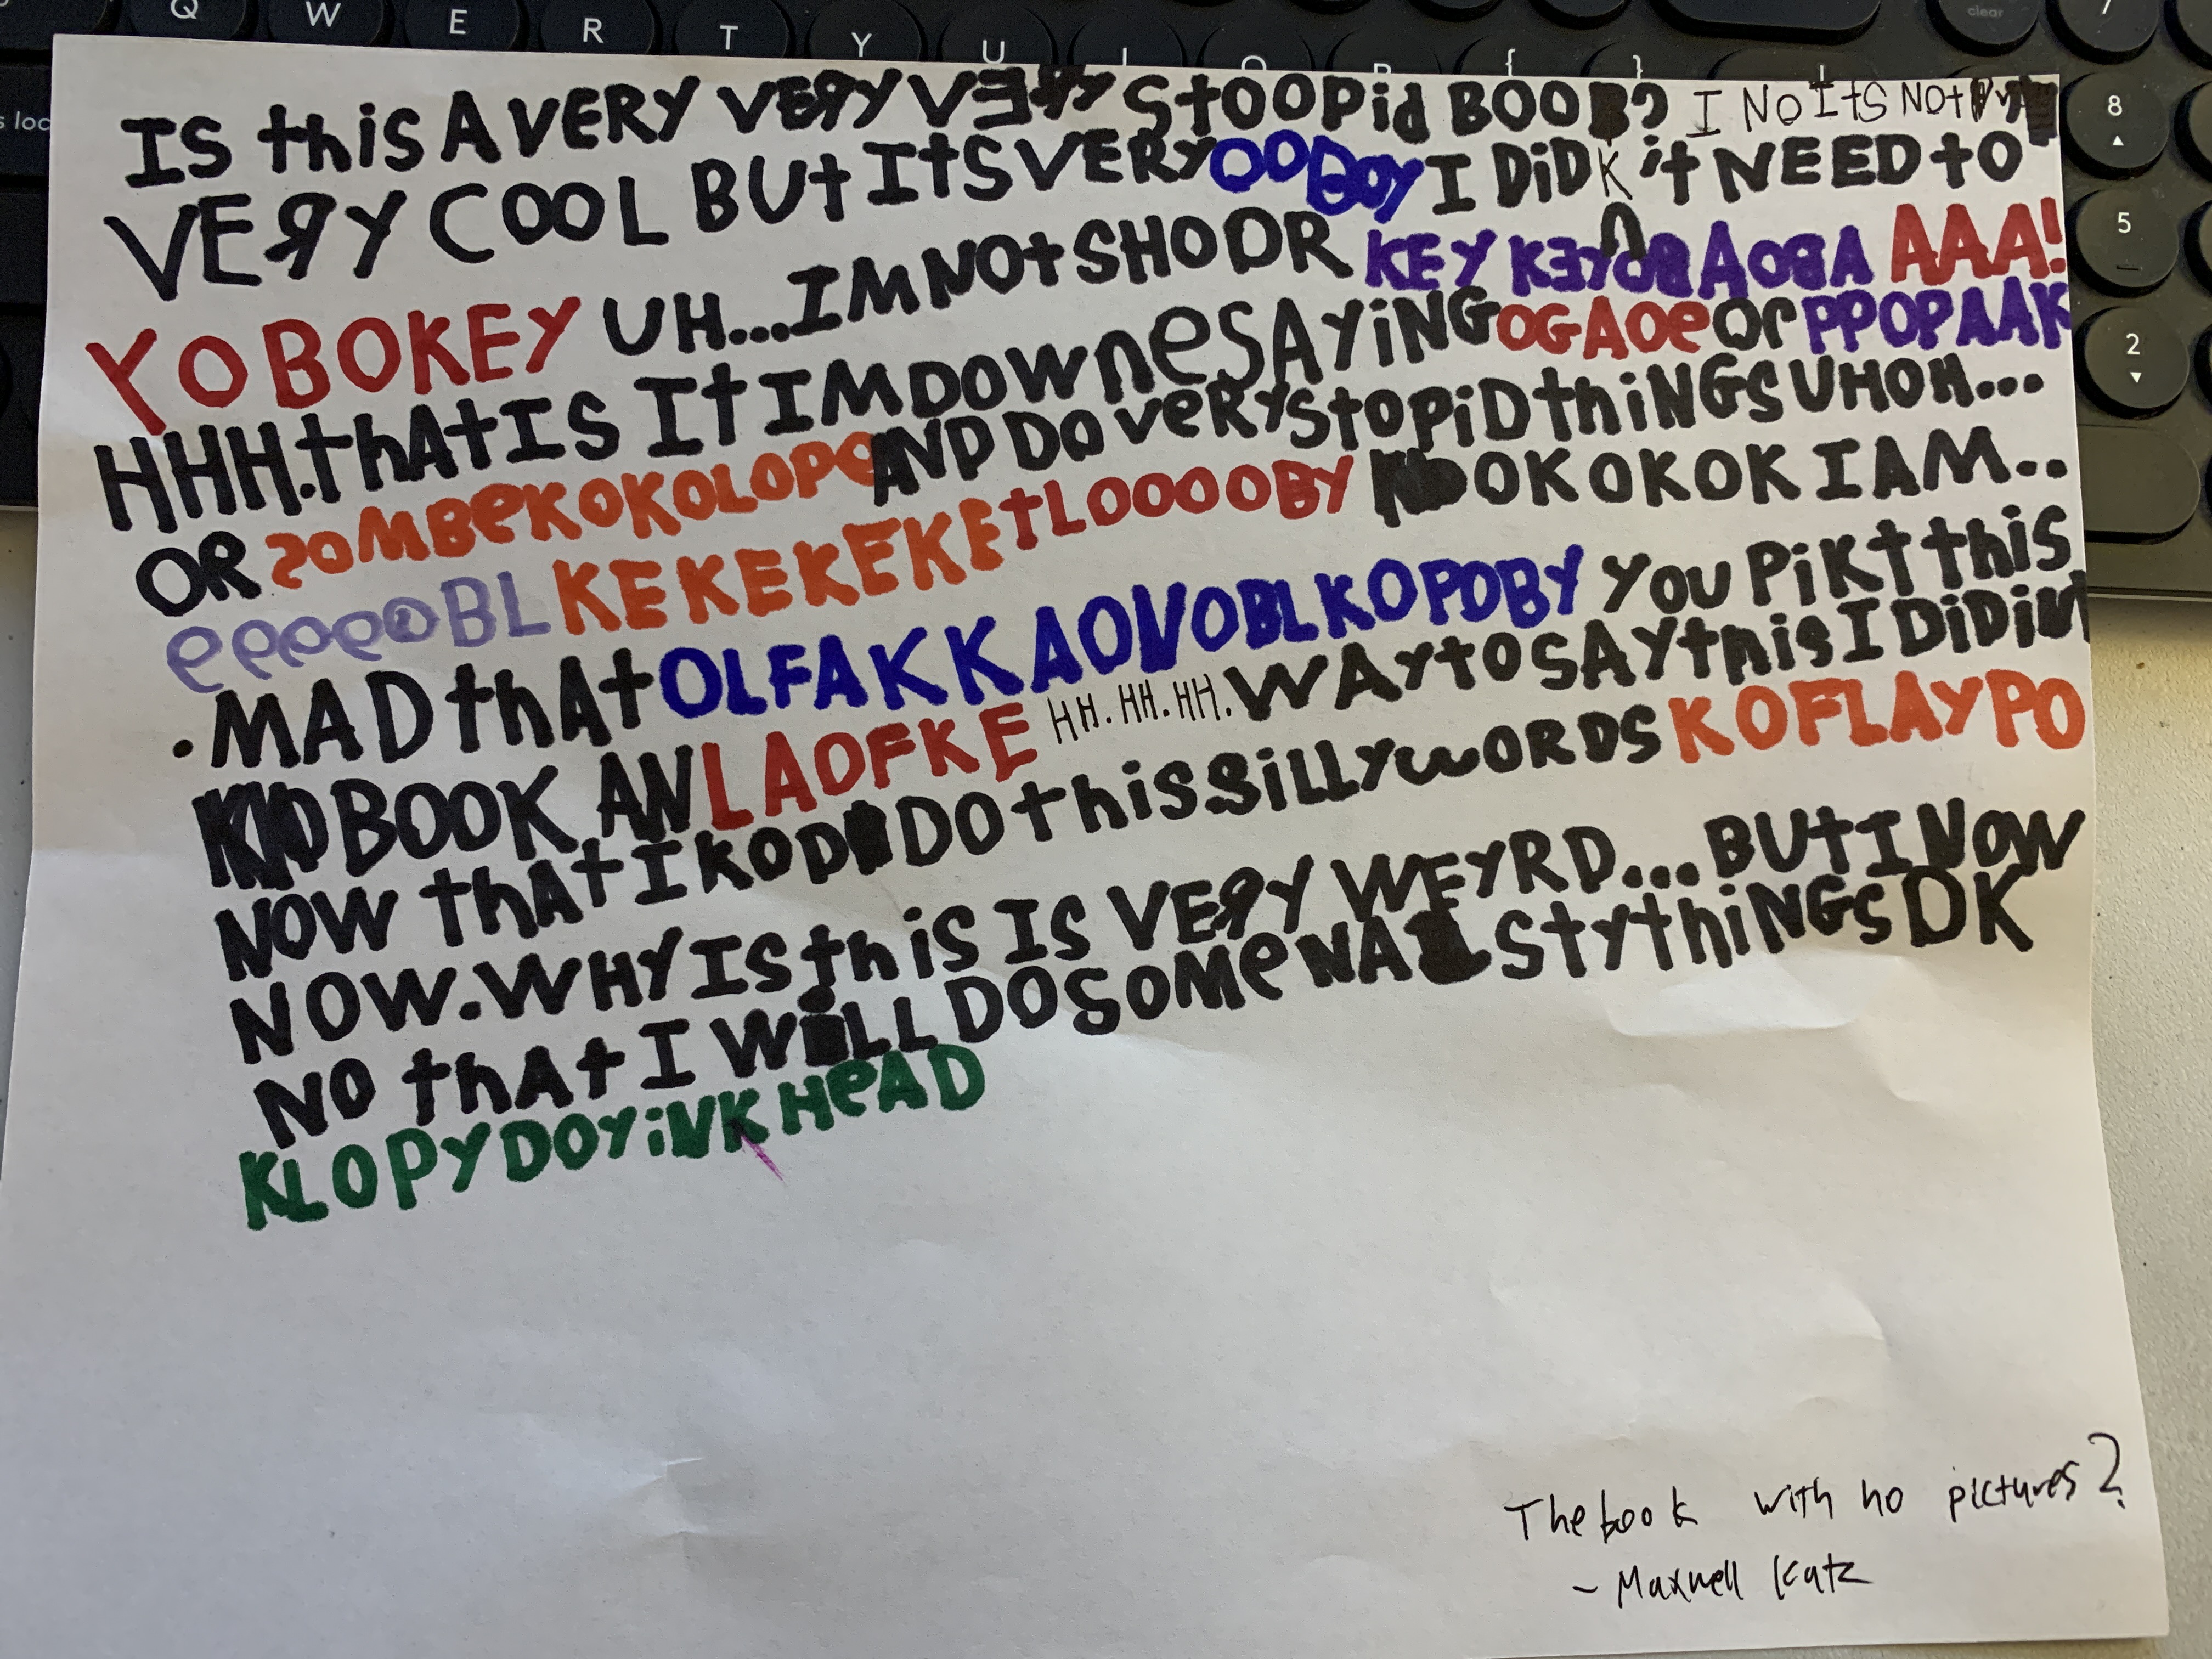 Q W E R T Y U I O P { } clear 7
s loc
8
5
2
IS thiS A VERY VERY VERY StOOPid BOOB? I NO ItS NOt
VERY COOL BUt ItS VERY OOBOY I DiDK'it NEED tO
YOBOKEY UH...IM NOt SHOOR KEY KEYOBAOBA AAA!
HHH.thAt IS It IM DOWNe SAYiNG OGAOe Or PPOPAAK
OR ZOMBeKOKOLOPO AND DO VeRY StOPiD thiNGS UHOH...
eeoeoOBL KEKEKEKEKEtLOOOOBY OK OK OK I AM..
.MAD thAt OLFAKKAOVOBLKOPOBY YOU PiKt thiS
KID BOOK AN LAOFKE HH.HH.HH. WAY tO SAY thiS I DiDiN
NOW thAt I KOD DO thiS SiLLY WORDS KOFLAYPO
NOW.WHY IS thiS IS VERY WEYRD...BUt I NOW
NO thAt I WiLL DO SOMe NA StY thiNGS OK
KLOPYDOYiNK HeAD
The book with no pictures?
- Maxwell Katz